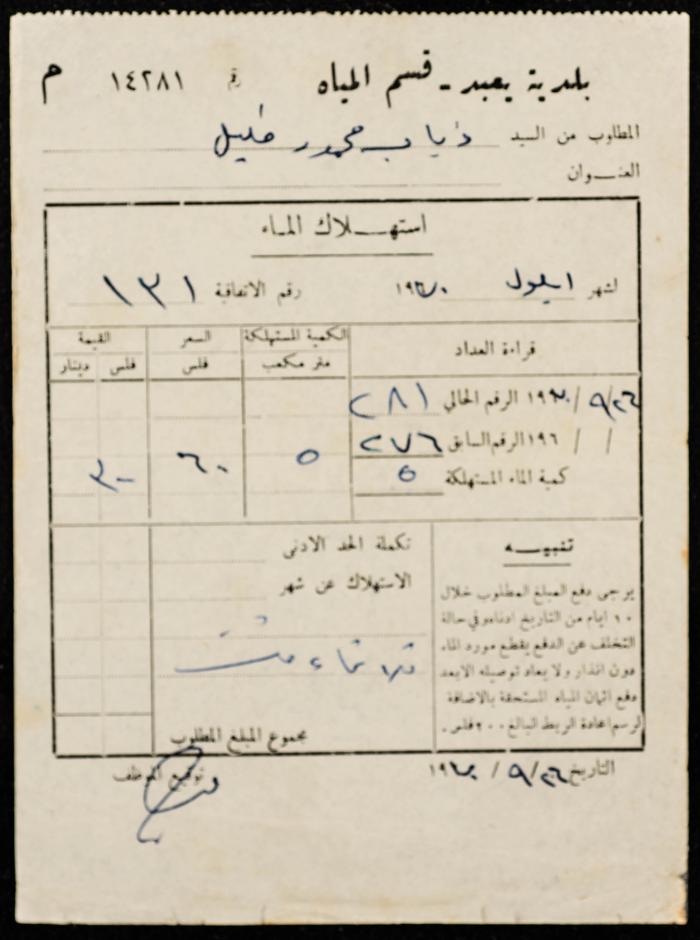 بلدية يعبد - قسم المياه رقم ١٤٢٨١ م
المطلوب من السيد ذياب محمود خليل
العنوان
استهلاك الماء
لشهر ايلول ١٩٧٠ رقم الاتفاقية ١٣١
قراءة العداد الكمية المستهلكة السعر القيمة
متر مكعب فلس فلس دينار
٩/٢٦ / ١٩٧٠ الرقم الحالي ٢٨١
/ / ١٩٦ الرقم السابق ٢٧٦
كمية الماء المستهلكة ٥ ٥ ٦٠ ٣٠٠
تنبيه
يرجى دفع المبلغ المطلوب خلال
١٠ ايام من التاريخ ادناه وفي حالة
التخلف عن الدفع يقطع مورد الماء
دون انذار ولا يعاد توصيله الا بعد
دفع اثمان المياه المستحقة بالاضافة
لرسم اعادة الربط البالغ ٢٠٠ فلس.
تكملة الحد الادنى
الاستهلاك عن شهر
ثلاثماءة فلس
مجموع المبلغ المطلوب
التاريخ ٩/٢٦ / ١٩٧٠ توقيع الموظف